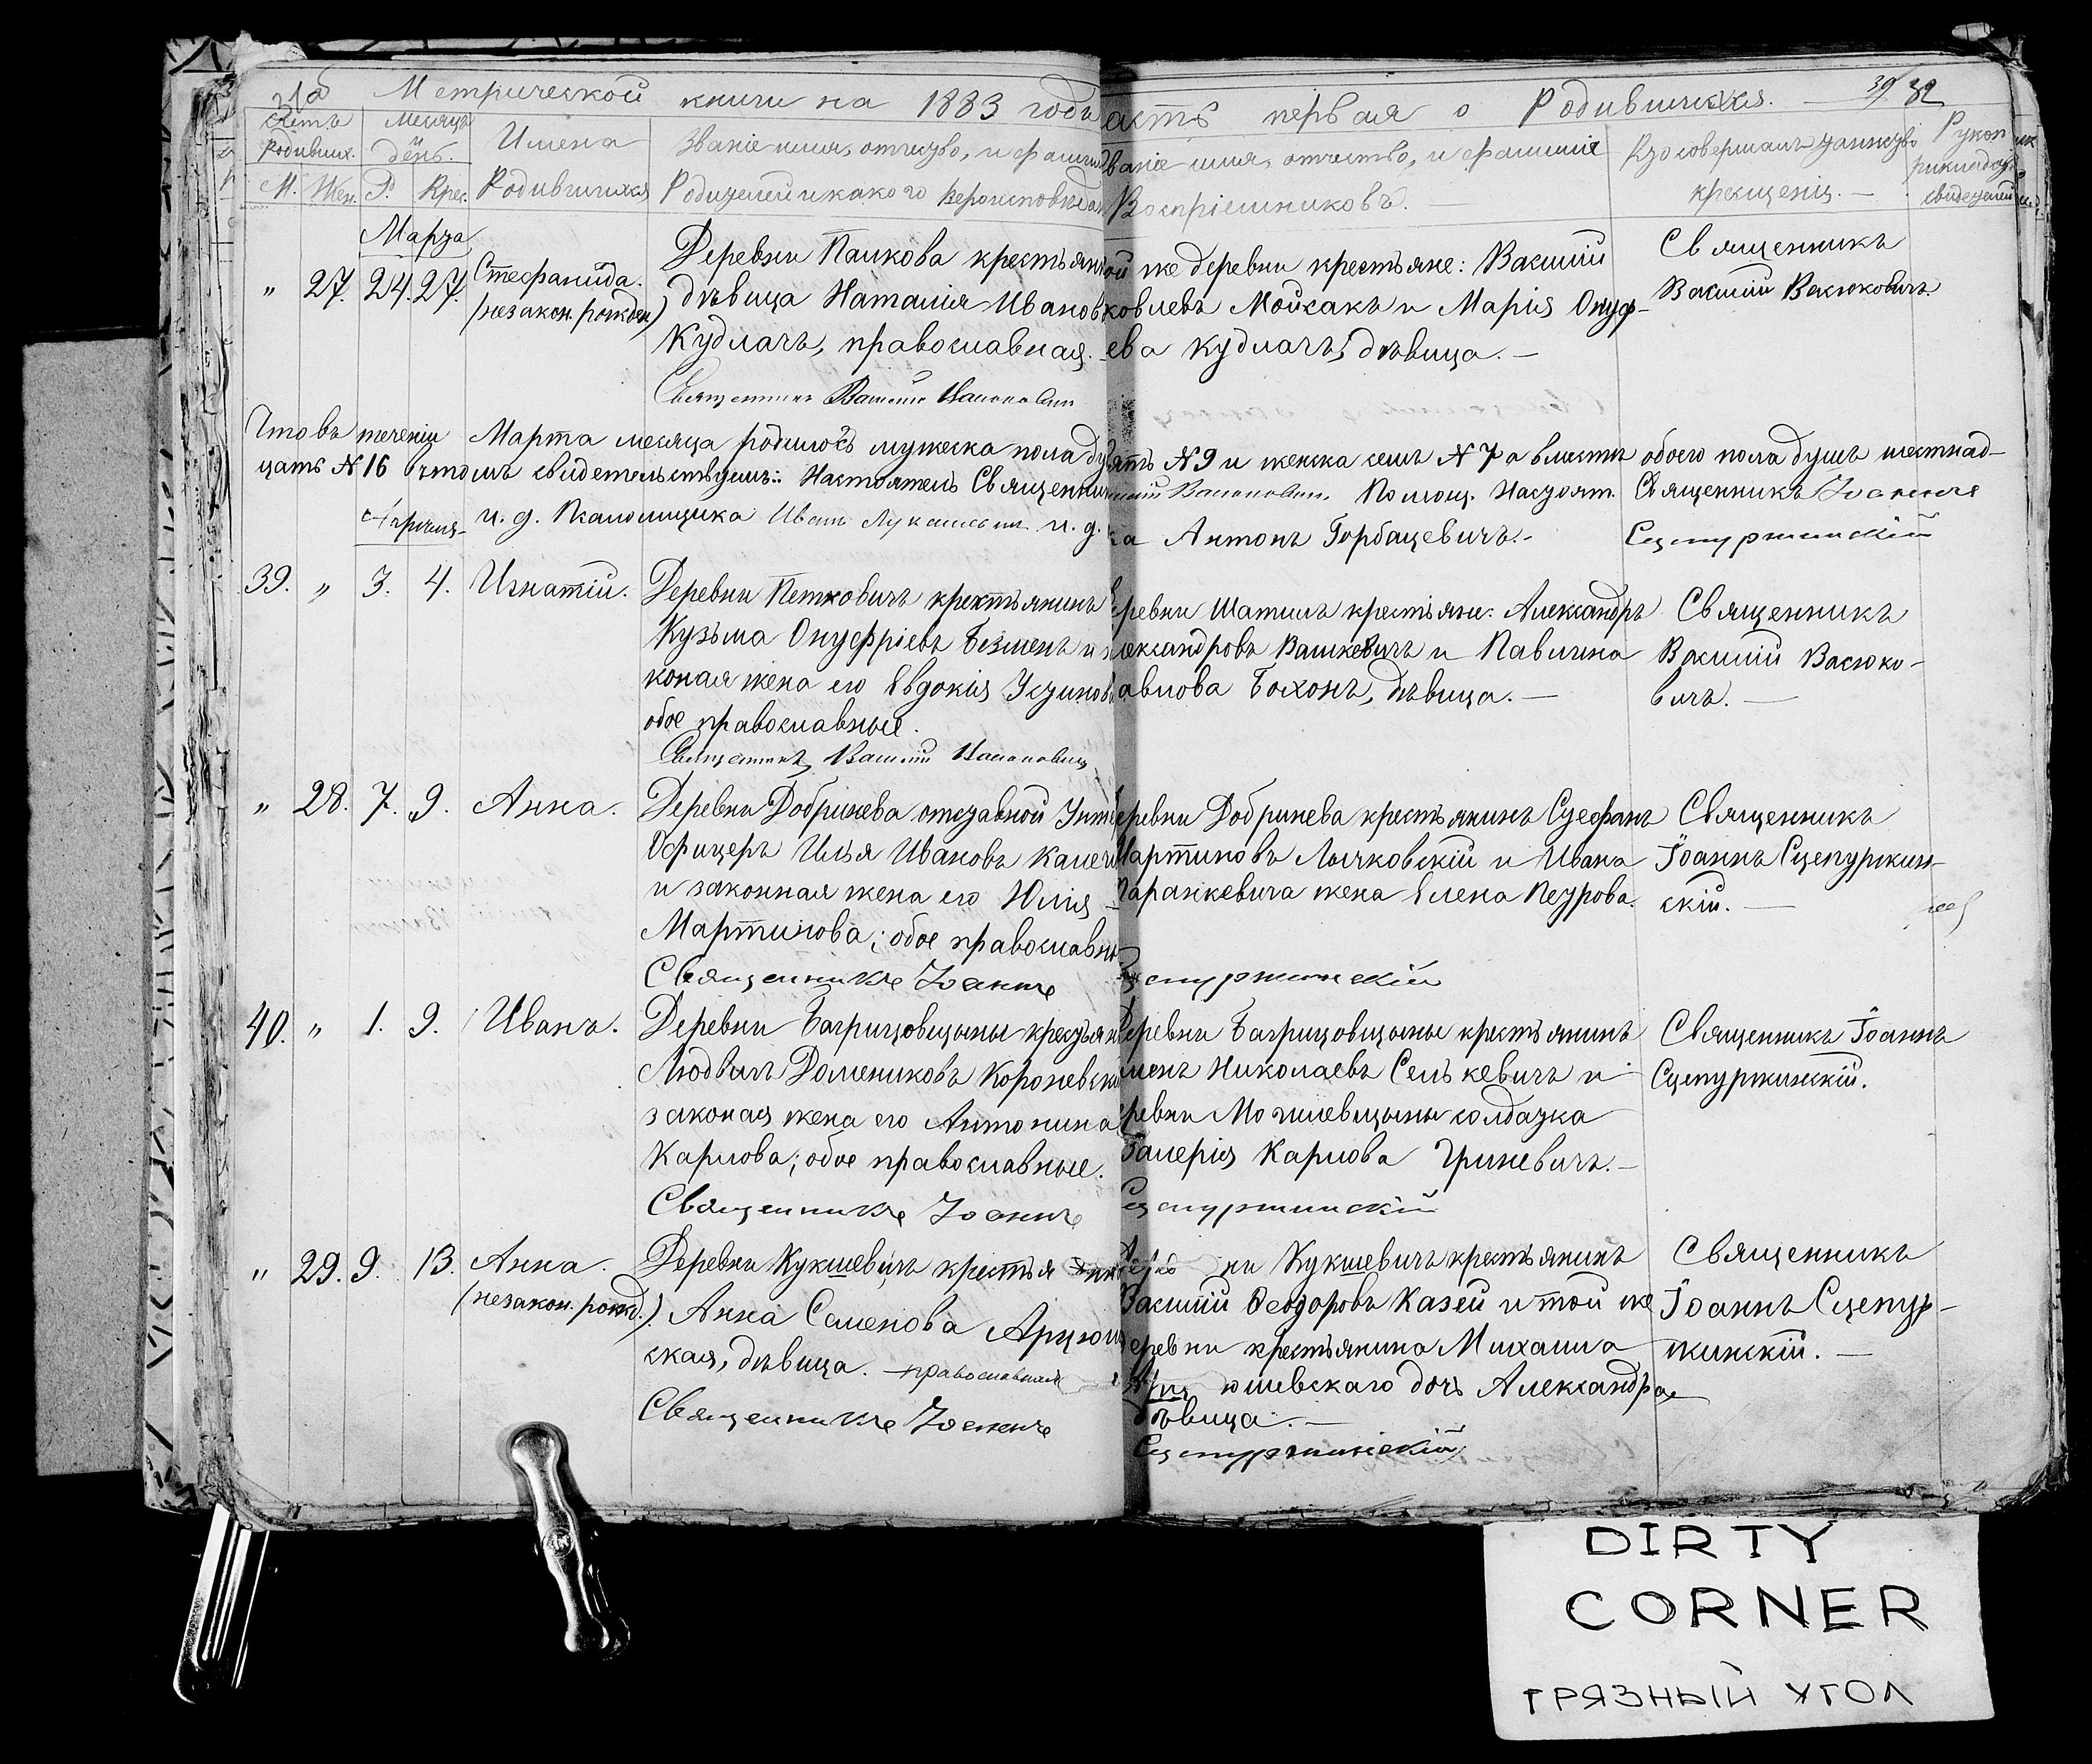 31об Метрической книги на 1883 годъ
асть первая о Родившихся. 39 32
Счетъ Родивших. Месяцъ и день. Имена Званіе имя, отчество, и фамилі
М. Жен. Р. Крес. Родившихся Родителей и какого вероисповедан
Званіе имя, отчество, и фамилія Кто совершалъ таинство
Воспріемниковъ. крещенія. свидетелей
Марта
" 27. 24. 27. Стефанида. (незакон. рожден.)
Деревни Паикова крестьян
дѣвица Наталія Иванов
Кудлачъ, православная.
Священникъ Василій Васюковичъ
ой же деревни крестьяне: Василій
ковлевъ Мойсакъ и Марія Онуф-
ева Кудлачъ, дѣвица.
Священникъ
Василій Васюковичъ.
Что въ теченіи Марта месяца родилось мужеска пола д
ять №9 и женска семь №7 а вместе обоего пола душъ шестнад-
цать №16 въ томъ свидетельствуемъ: Настоятель Священни
илій Васюковичъ Помощ. Настоят. Священникъ Іоаннъ
и. д. Псаломщика Иванъ Лукашевичъ и. д.
ка Антонъ Горбацевичъ.
Сцепуржинскій
Апреля
39. " 3. 4. Игнатій.
Деревни Петковичъ крестьянинъ
Кузьма Онуфріевъ Безменъ и з
коная жена его Евдокія Устинов
обое православные.
Священникъ Василій Васюковичъ
еревни Шатилъ крестьяне: Александръ
лександровъ Вашкевичъ и Павлина
авлова Бохонъ, дѣвица.
Священникъ
Василій Васюко-
вичъ.
" 28. 7. 9. Анна.
Деревни Добринева отставной Унт
Офицеръ Илья Ивановъ Капеч
и законная жена его Юлія
Мартинова; обое православн
Священникъ Іоаннъ
еревни Добринева крестьянинъ Стефанъ
Мартиновъ Лычковскій и Ивана
Таранкевича жена Елена Петрова.
Сцепуржинскій
Священникъ
Іоаннъ Сцепуржин-
скій.
40. " 1. 9. Иванъ.
Деревни Багрицовщины крестьян
Людвигъ Домениковъ Короневск
законая жена его Антонина
Карлова; обое православные.
Священникъ Іоаннъ
Деревни Багрицовщины крестьянинъ
менъ Николаевъ Сенькевичъ и
еревни Могилевщины солдатка
Валерія Карлова Гриневичъ.
Сцепуржинскій
Священникъ Іоаннъ
Сцепуржинскій.
" 29. 9. 13. Анна. (незакон. рожд.)
Деревни Кукшевичъ крестья
Анна Семенова Арцюш
ская, дѣвица. православная
Священникъ Іоаннъ
ни Кукшевичъ крестьянинъ
Василій Феодоровъ Казей и той же
деревни крестьянина Михаила
Арц юшевскаго дочь Александра
дѣвица.
Сцепуржинскій
Священникъ
Іоаннъ Сцепур-
жинскій.
DIRTY
CORNER
ГРЯЗНЫЙ УГОЛ